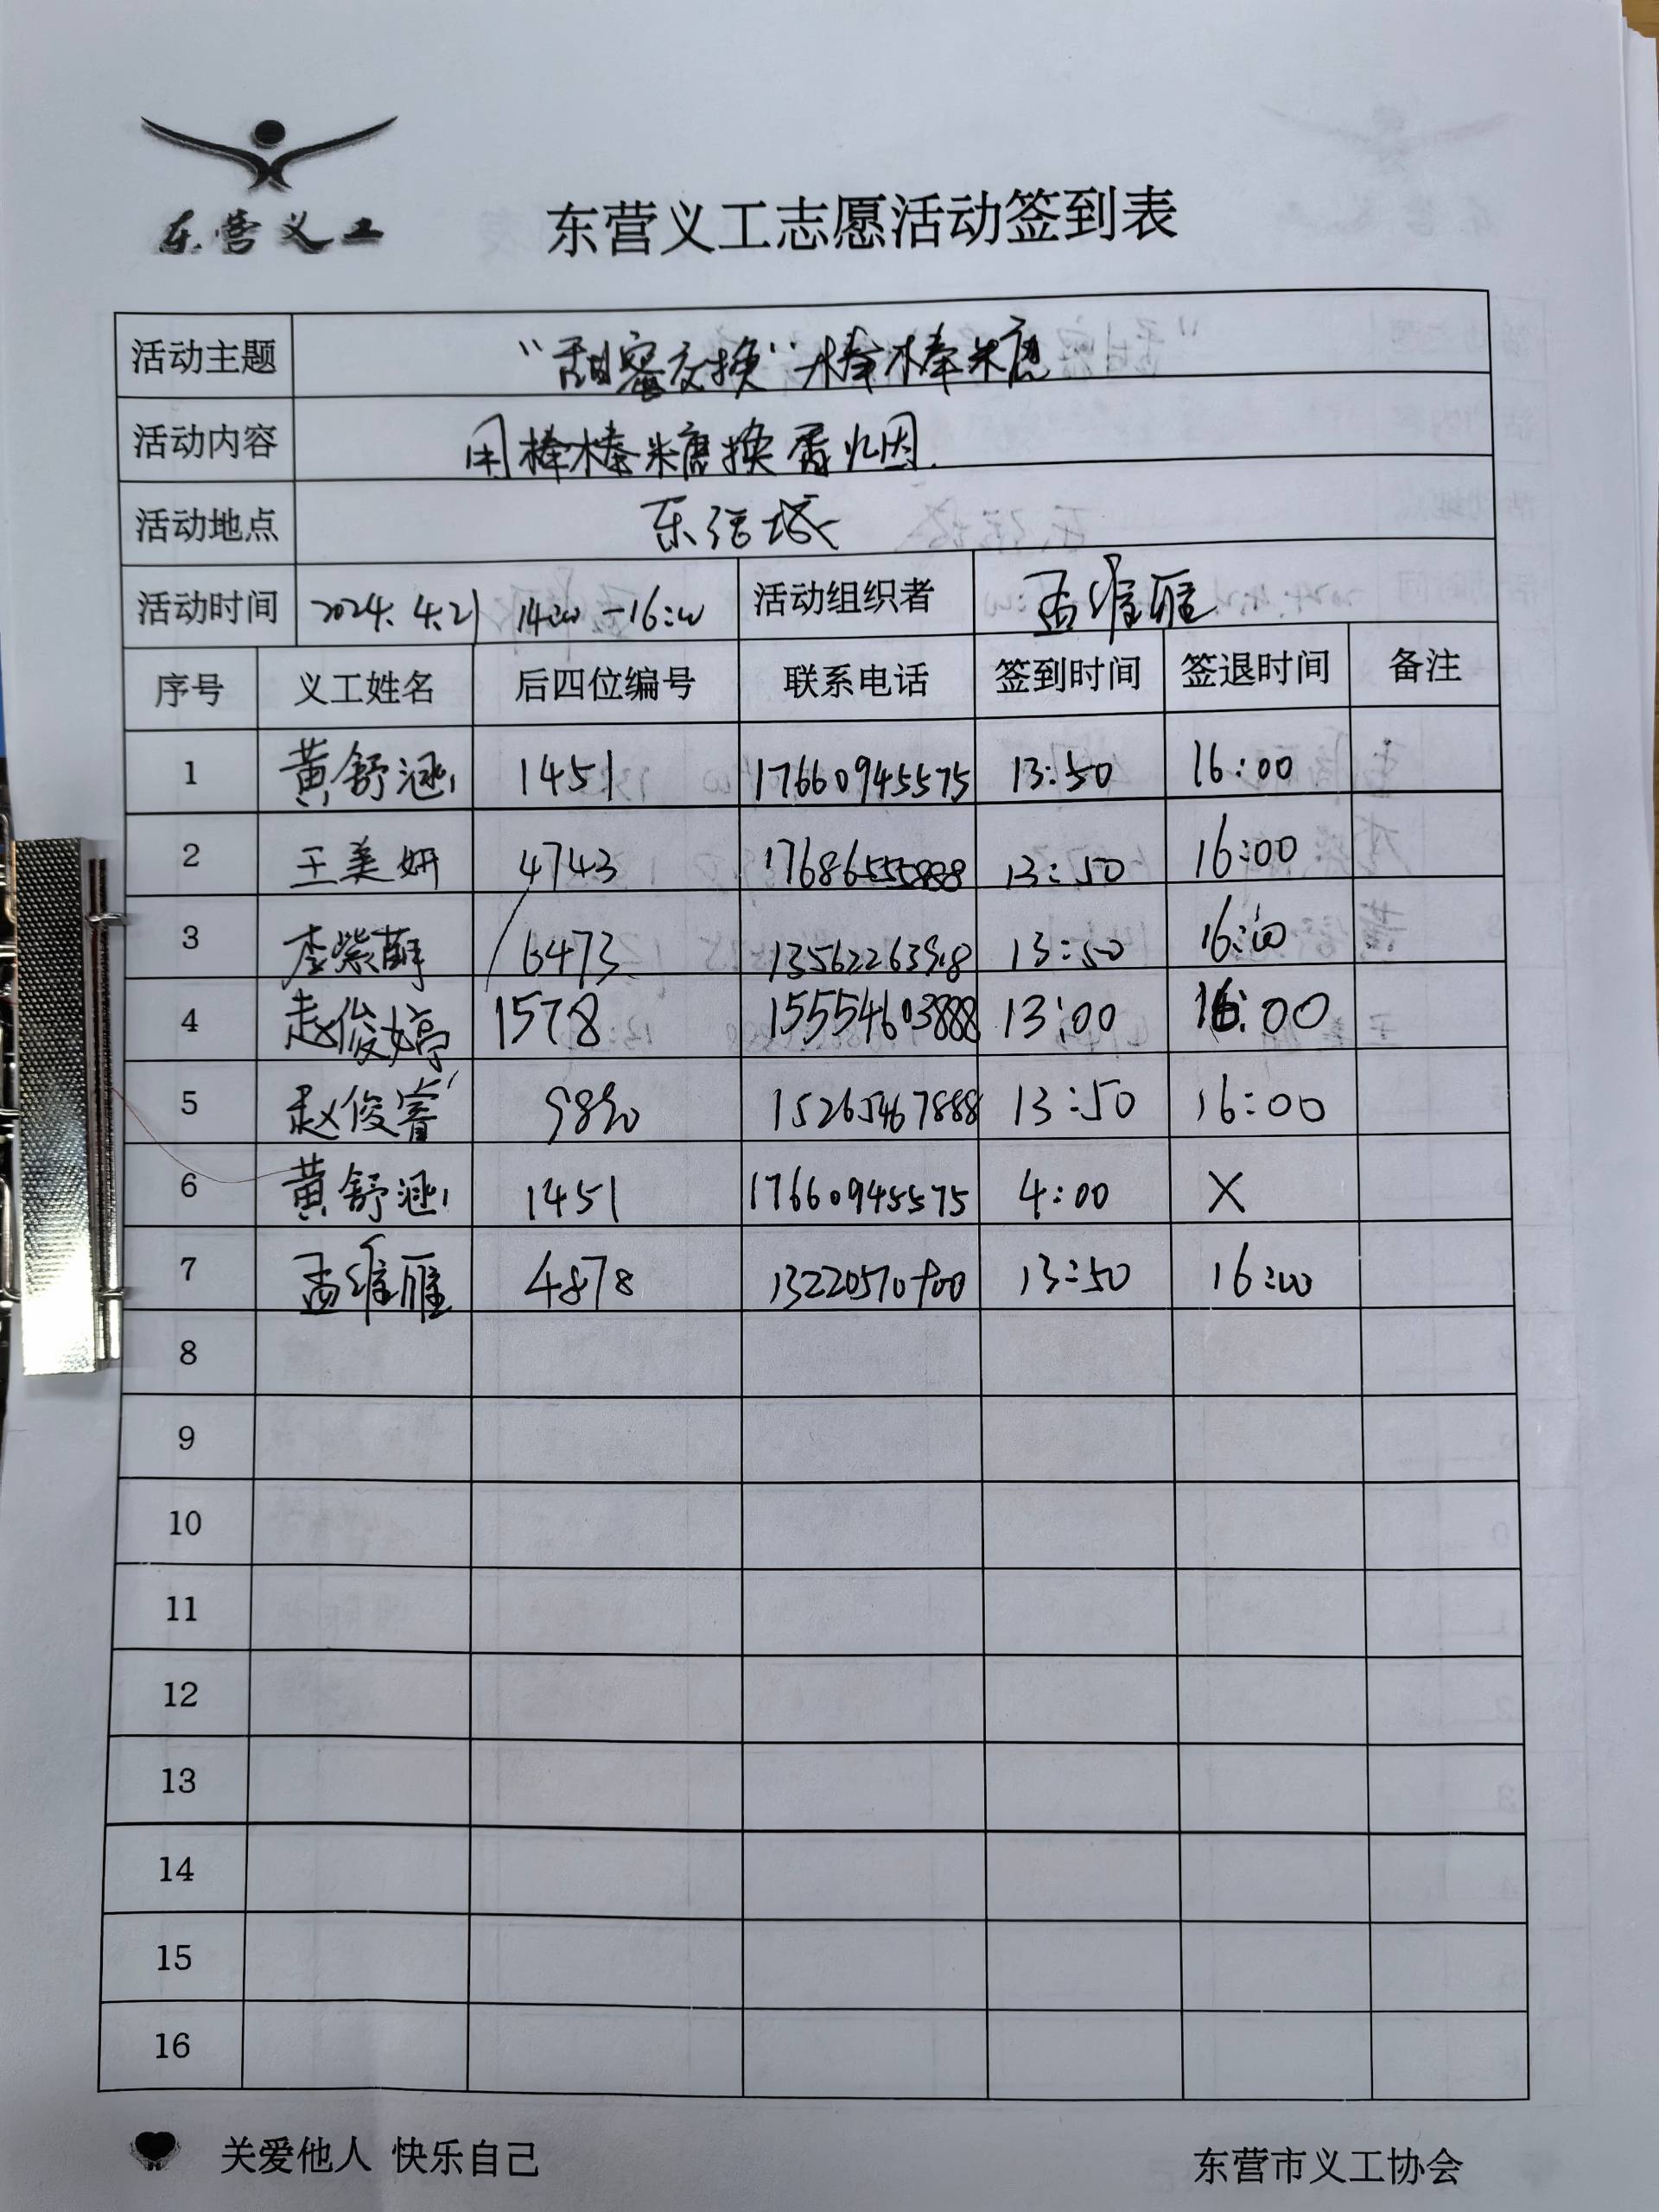 东营义工
东营义工志愿活动签到表
活动主题 “甜蜜交换”棒棒糖
活动内容 用棒棒糖换香烟.
活动地点 东信塔
活动时间 2024.4.21 14:00-16:00 活动组织者 孟维雁
序号 义工姓名 后四位编号 联系电话 签到时间 签退时间 备注
1 黄舒涵 1451 17660945575 13:50 16:00
2 王美妍 4743 17686555888 13:50 16:00
3 李紫萌 6473 13:50 16:00
4 赵俊婷 1578 15554603888 13:00 16:00
5 赵俊睿 9890 15265467888 13:50 16:00
6 黄舒涵 1451 17660945575 4:00 X
7 孟维雁 4878 13:50 16:00
8
9
10
11
12
13
14
15
16
关爱他人 快乐自己
东营市义工协会